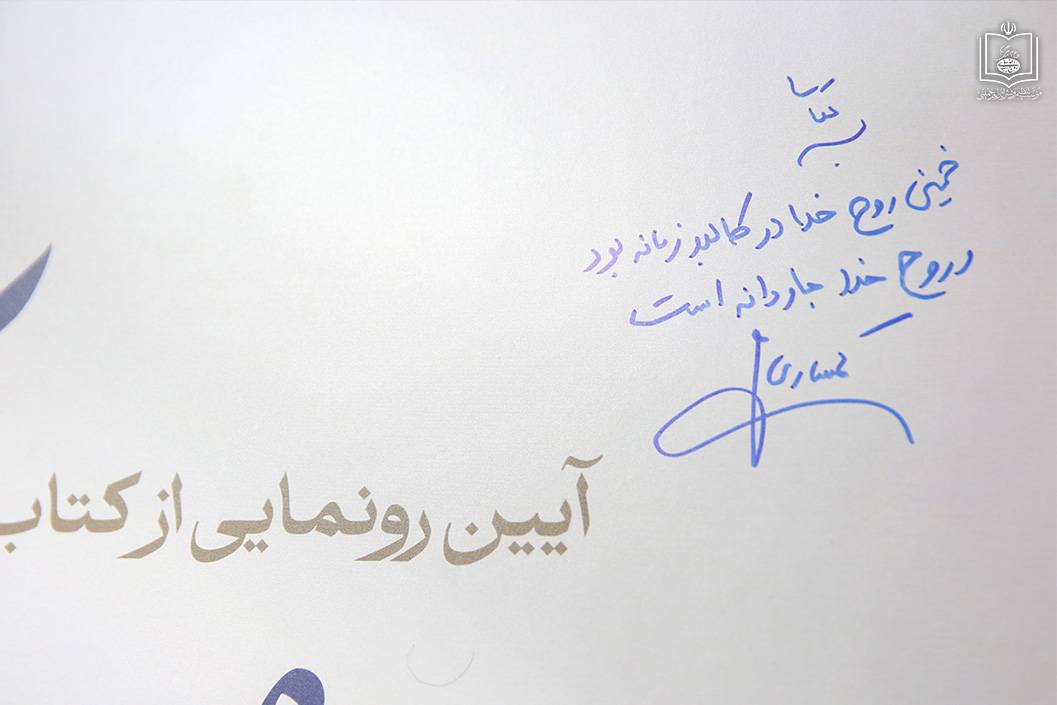 خمینی روح خدا در کالبد زمانه بود
و روح خدا جاودانه است
آیین رونمایی از کتاب